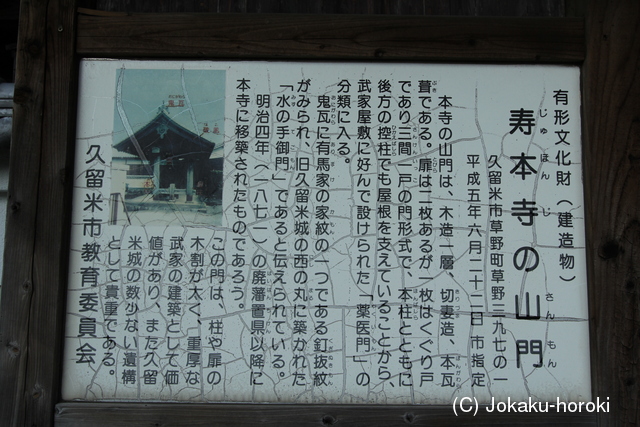 有形文化財（建造物）
寿本寺の山門
じゅほんじ さんもん
久留米市草野町草野三九七の一
平成五年六月二十二日市指定
本寺の山門は、木造一層、切妻造、本瓦
葺である。扉は二枚あるが一枚はくぐり戸
であり三間一戸の門形式で、本柱とともに
後方の控柱でも屋根を支えていることから、
武家屋敷に好んで設けられた「薬医門」の
分類に入る。
鬼瓦に有馬家の家紋の一つである釘抜紋
がみられ、旧久留米城の西の丸に築かれた
「水の手御門」であると伝えられている。
明治四年（一八七一）の廃藩置県以降に
本寺に移築されたものであろう。
この門は、柱や扉の
木割が太く、重厚な
武家の建築として価
値があり、また久留
米城の数少ない遺構
として貴重である。
久留米市教育委員会
(C) Jokaku-horoki